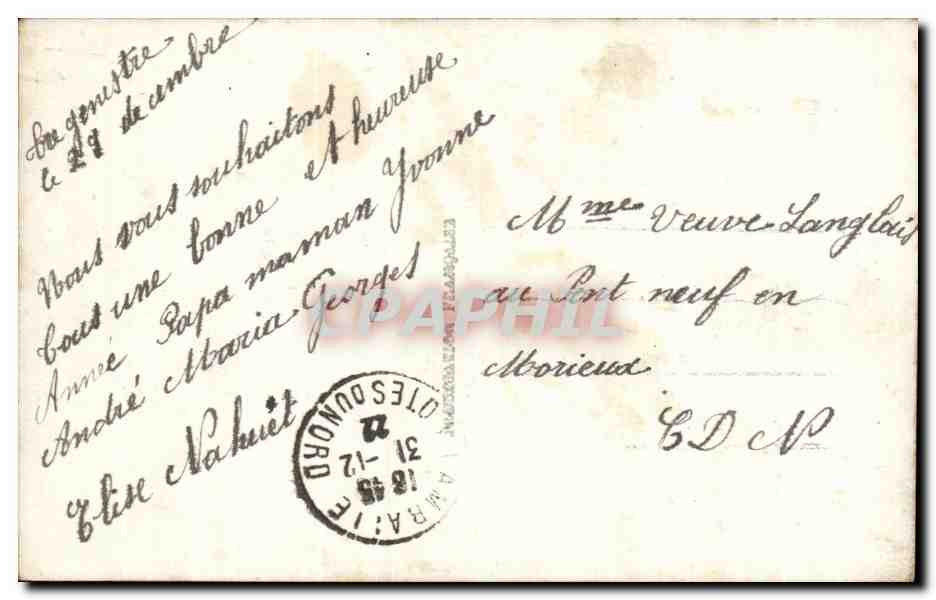 le 29 décembre
Nous vous souhaitons
tous une bonne et heureuse
Année Papa maman Yvonne
André Maria Georges
Elise Nahuët
Mme Veuve Langlais
au Pont neuf en
Morieux
C D N
CPAPHIL
LAMBALLE
COTES DU NORD
16 45
31 -12
22